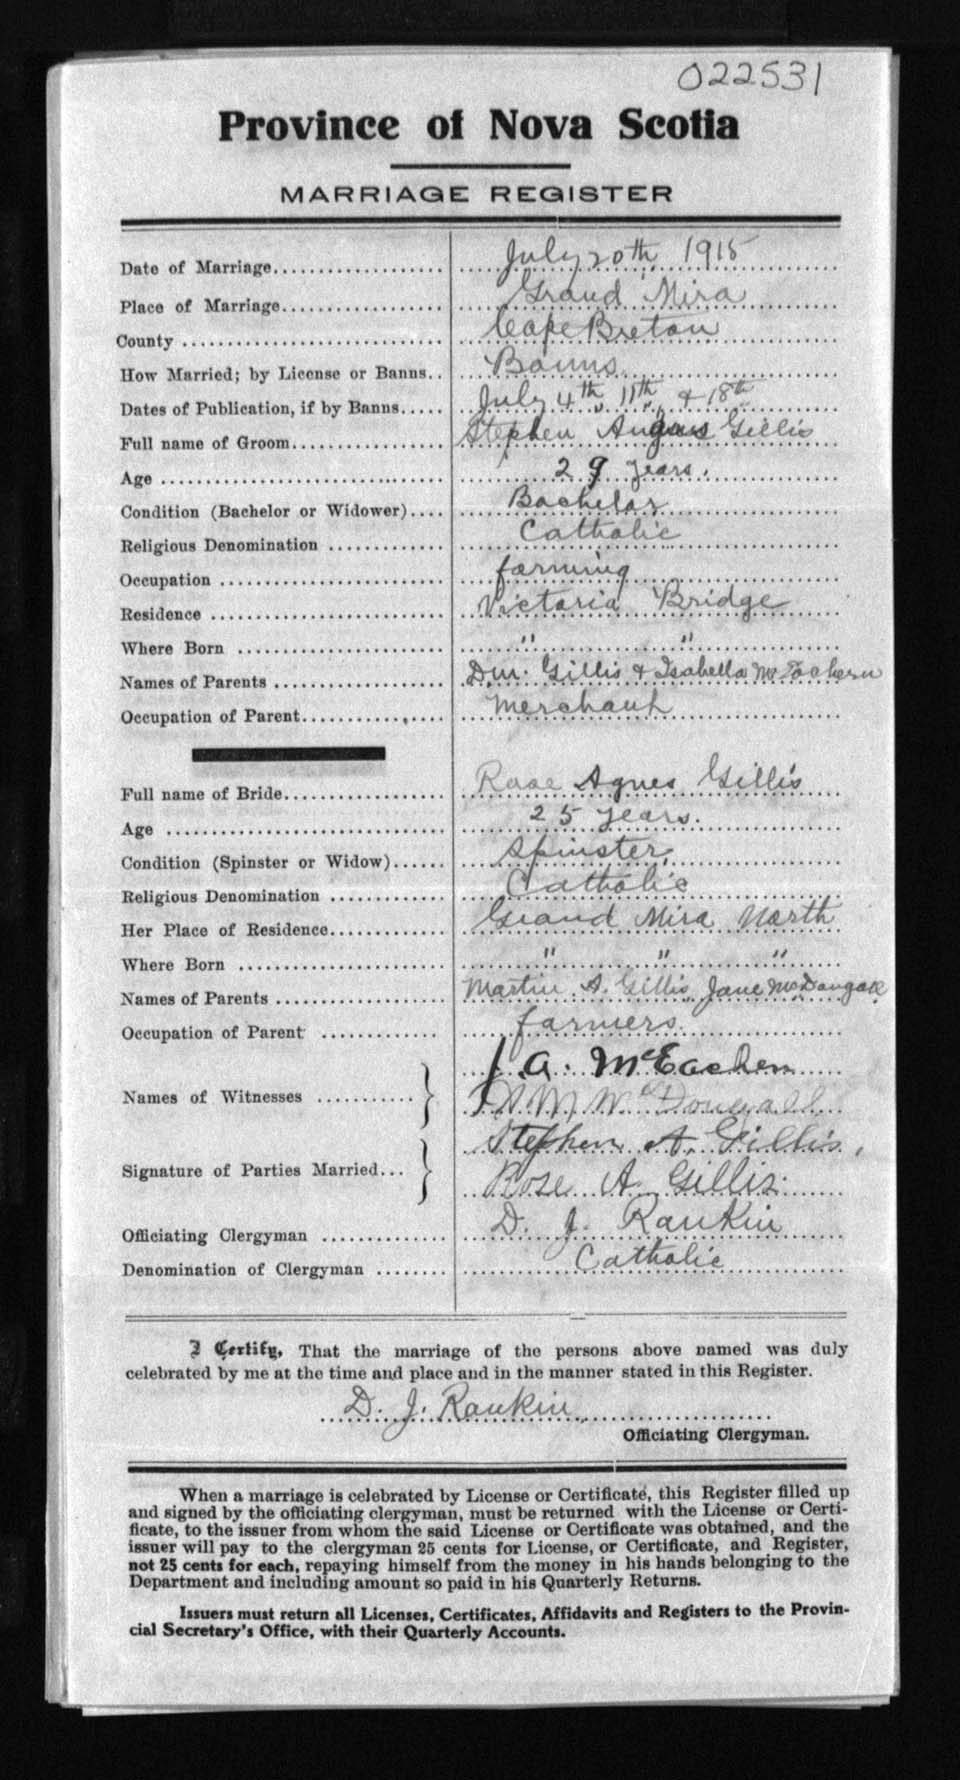 022531
Province of Nova Scotia
MARRIAGE REGISTER
Date of Marriage July 20th, 1915
Place of Marriage Grand Mira
County Cape Breton
How Married; by License or Banns Banns
Dates of Publication, if by Banns July 4th, 11th, & 18th
Full name of Groom Stephen Angus Gillis
Age 29 years.
Condition (Bachelor or Widower) Bachelor
Religious Denomination Catholic
Occupation farming
Residence Victoria Bridge
Where Born " "
Names of Parents Gillis & Isabella McEachern
Occupation of Parent Merchant
Full name of Bride Rose Agnes Gillis
Age 25 years.
Condition (Spinster or Widow) Spinster
Religious Denomination Catholic
Her Place of Residence Grand Mira North
Where Born " " "
Names of Parents Martin A. Gillis, Jane McDougall
Occupation of Parent farmers
Names of Witnesses J. A. McEachen
M McDougall
Signature of Parties Married Stephen A. Gillis,
Rose A Gillis
Officiating Clergyman D. J. Rankin
Denomination of Clergyman Catholic
I Certify, That the marriage of the persons above named was duly
celebrated by me at the time and place and in the manner stated in this Register.
D. J. Rankin
Officiating Clergyman.
When a marriage is celebrated by License or Certificate, this Register filled up
and signed by the officiating clergyman, must be returned with the License or Certi-
ficate, to the issuer from whom the said License or Certificate was obtained, and the
issuer will pay to the clergyman 25 cents for License, or Certificate, and Register,
not 25 cents for each, repaying himself from the money in his hands belonging to the
Department and including amount so paid in his Quarterly Returns.
Issuers must return all Licenses, Certificates, Affidavits and Registers to the Provin-
cial Secretary's Office, with their Quarterly Accounts.